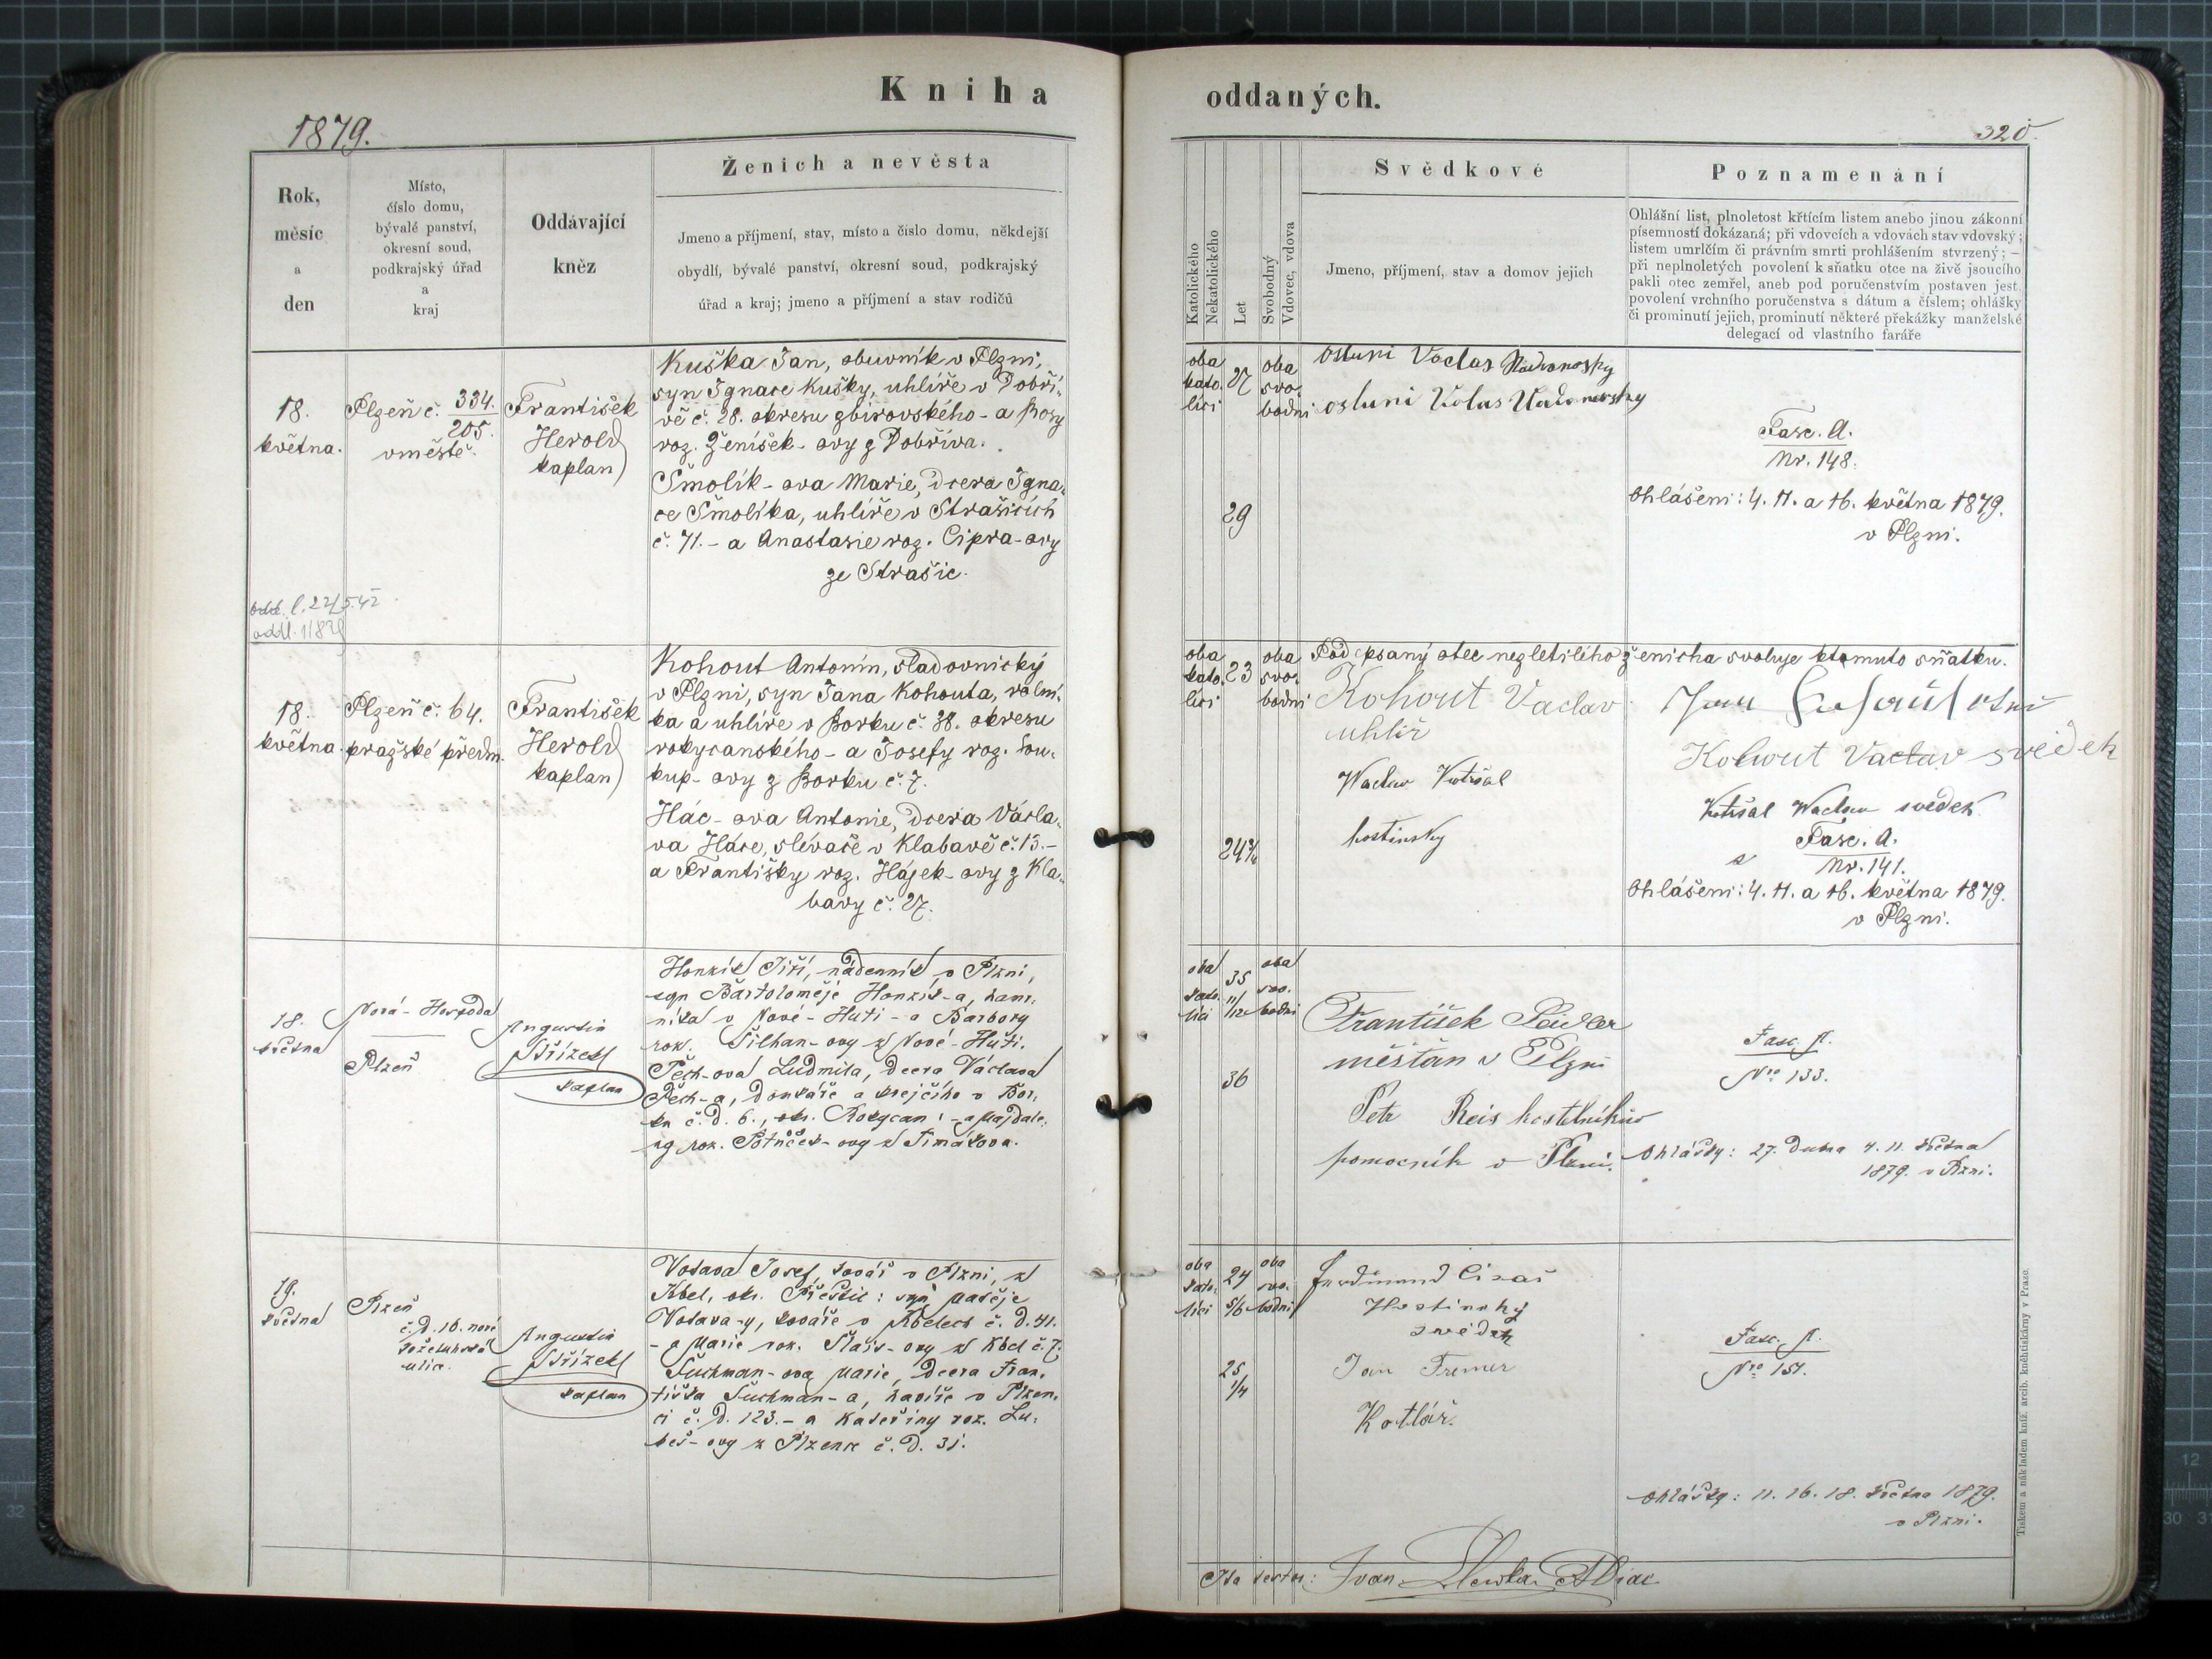 Kniha
oddaných.
1879.
320.
Rok,
měsíc
a
den
Místo,
číslo domu,
bývalé panství,
okresní soud,
podkrajský úřad
a
kraj
Oddávající
kněz
Ženich a nevěsta
Jmeno a příjmení, stav, místo a číslo domu, někdejší
obydlí, bývalé panství, okresní soud, podkrajský
úřad a kraj; jmeno a příjmení a stav rodičů
Katolického
Nekatolického
Let
Svobodný
Vdovec, vdova
Svědkové
Jmeno, příjmení, stav a domov jejich
Poznamenání
Ohlášní list, plnoletost křtícím listem anebo jinou zákonní
písemností dokázaná; při vdovcích a vdovách stav vdovský;
listem umrlčím či právním smrti prohlášením stvrzený; —
při neplnoletých povolení k sňatku otce na živě jsoucího
pakli otec zemřel, aneb pod poručenstvím postaven jest,
povolení vrchního poručenstva s dátum a číslem; ohlášky
či prominutí jejich, prominutí některé překážky manželské
delegací od vlastního faráře
18.
května.
Plzeň č. 334.
205.
v městě.
František
Herold
kaplan
Kuška Jan, obuvník v Plzni,
syn Ignace Kušky, uhlíře v Dobří-
vě č. 28. okresu zbirovského - a Rosy
roz. Ženíšek - ovy z Dobříva.
Šmolík - ova Marie, dcera Igna-
ce Šmolíka, uhlíře v Strašicích
č. 71. - a Anastasie roz. Cipra - ovy
ze Strašic.
oba
kato-
líci
27
29
oba
svo-
bodni
Fasc. A.
Nr. 148.
Ohlášeni: 4. 11. a 16. května 1879.
v Plzni.
18.
května.
Plzeň č. 64.
pražské předm.
František
Herold
kaplan
Kohout Antonín, sladovnický
v Plzni, syn Jana Kohouta, rolní-
ka a uhlíře v Borku č. 38. okresu
rokycanského - a Josefy roz. Sou-
kup - ovy z Borku č. 7.
Hác - ova Antonie, dcera Václa-
va Háce, slévače v Klabavě č. 13. -
a Františky roz. Hájek - ovy z Kla-
bavy č. 27.
oba
kato-
líci
23
oba
svo-
bodni
Podepsaný otec nezletilého ženicha svoluje k tomuto sňatku.
Kohout Vaclav
uhlíř
Kohout Vaclav svědek
Waclav
Waclav svědek
hostinsky
Fasc. A.
Nr. 141.
Ohlášeni: 4. 11. a 16. května 1879.
v Plzni.
18.
května
Nová - Hospoda
Plzeň
Augustin
Střízek
kaplan
Honzík Jiří, nádenník v Plzni,
syn Bartoloměje Honzík-a, ham-
níka v Nové - Huti - a Barbory
roz. Šilhan - ovy z Nové - Huti.
Pech - ova Ludmila, dcera Václava
Pech - a, domkáře a krejčího v Bor-
ku č. d. 6., okr. Rokycan: - a Majdale-
ny roz. Potůček - ovy z Timákova.
oba
kato-
líci
35
11/12
36
oba
svo-
bodni
František
měšťan v Plzni
Petr Reis
pomocník v Plzni.
Fasc. A.
Nro 133.
Ohlášky: 27. dubna 4. 11. května
1879. v Plzni.
19.
května
Plzeň
č. d. 16. nové
ulice.
Augustin
Střízek
kaplan
Votava Josef, kovář v Plzni, z
Kbel, okr. Přeštic: syn Matěje
Votava - y, kováře v Kbelech č. d. 41.
- a Marie roz. - ovy z Kbel č. 7.
Suchman - ova Marie, dcera Fran-
tiška Suchman - a, havíře v Plzen-
ci č. d. 123. - a Kateřiny roz. Lu-
keš - ovy z Plzence č. d. 31.
oba
kato-
líci
24
5/6
25
1/4
oba
svo-
bodni
Ferdinand
Hostinský
svědek
Jan
Kotlář.
Fasc. A.
Nro 151.
Ohlášky: 11. 16. 18. května 1879.
v Plzni.
Tiskem a nákladem kníž. arcib. kněhtiskárny v Praze.